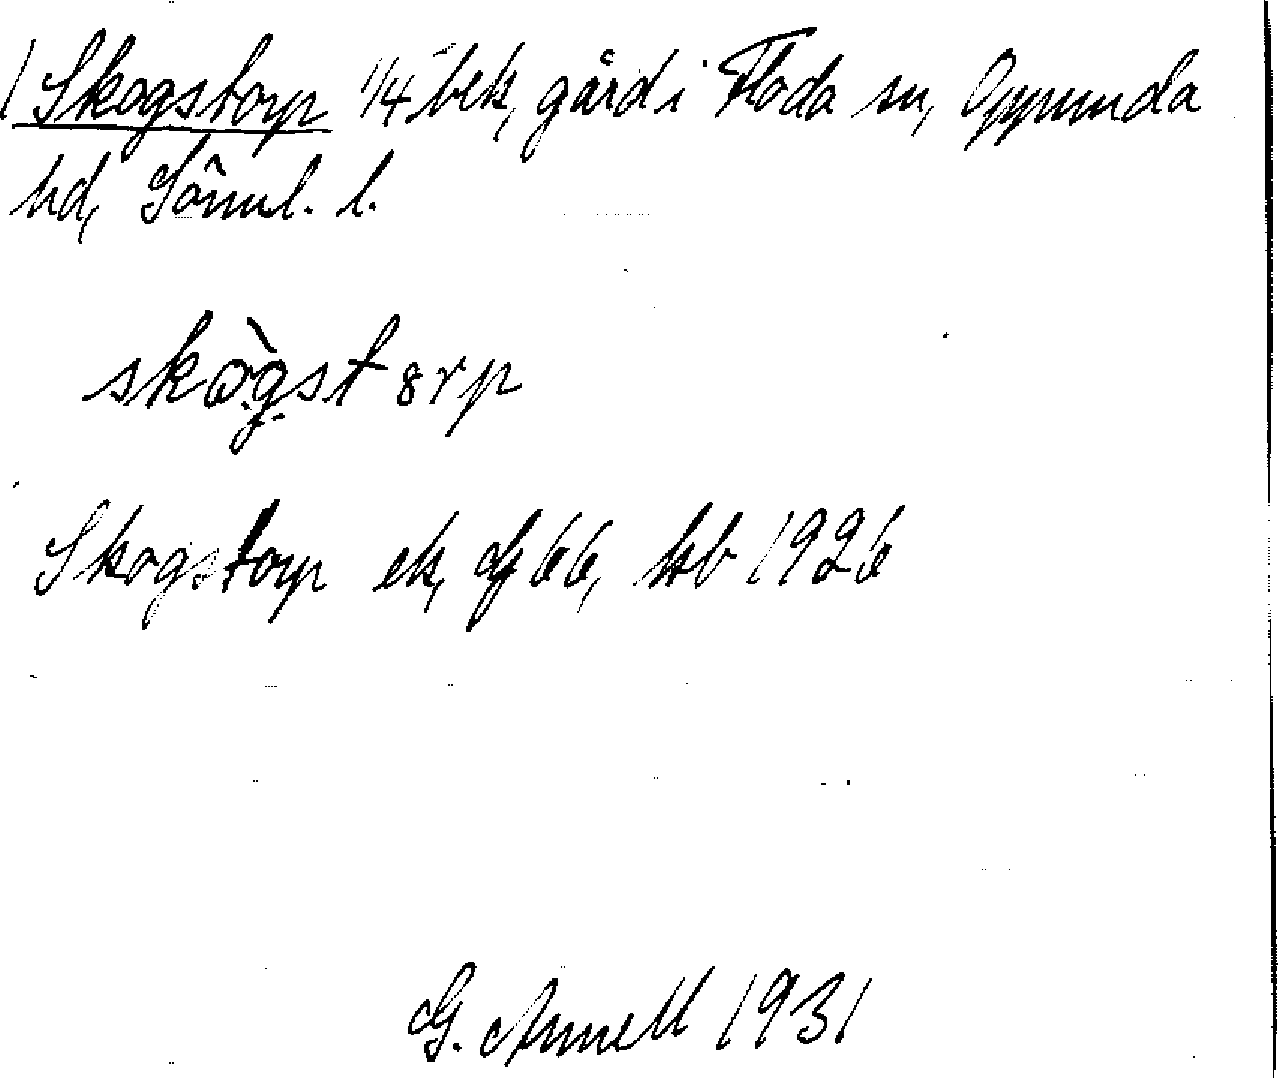 / Skogstorp 1/4 bek, gård i Floda sn, Oppunda
hd, Sörml. l.
skògst8rp
Skogstorp ek, Gf 66, kb 1926
G. Annell 1931